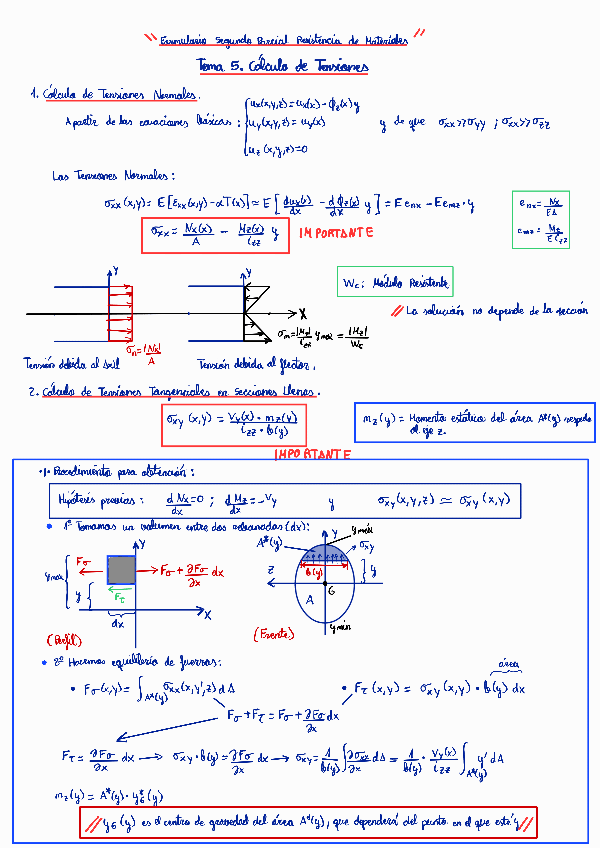 " Formulario Segundo Parcial Resistencia de Materiales "
Tema 5. Cálculo de Tensiones
1. Cálculo de Tensiones Normales.
A partir de las ecuaciones básicas: { ux(x,y,z) = ux(x) - ϕz(x) y
uy(x,y,z) = uy(x) y de que σxx >> σyy ; σxx >> σzz
uz(x,y,z) = 0
Las Tensiones Normales:
σxx(x,y) = E [εxx(x,y) - αT(x)] ≃ E [ dux(x)/dx - dϕz(x)/dx y ] = E enx - E emz · y
enx = Nx/EA
emz = Mz/E Izz
σxx = Nx(x)/A - Mz(x)/Izz y IMPORTANTE
Y Y
X
Wc: Módulo Resistente
// La solución no depende de la sección
σn = |Nx|/A
σm = |Mz|/Izz ymax = |Mz|/Wc
Tensión debida al Axil Tensión debida al flector.
2. Cálculo de Tensiones Tangenciales en Secciones Llenas.
σxy (x,y) = Vy(x) · mz(y) / Izz · b(y)
mz(y) = Momento estático del área A*(y) respecto
al eje z.
IMPORTANTE
·1· Procedimiento para obtención:
Hipótesis previas: dNx/dx = 0 ; dMz/dx = -Vy y σxy(x,y,z) ≃ σxy(x,y)
• 1º Tomamos un volumen entre dos rebanadas (dx):
Y A*(y) Y ymáx σxy
ymax Fσ Fσ + ∂Fσ/∂x dx Z b(y) y
y Fτ G
A
dx X ymín
(Perfil) (Frente)
• 2º Hacemos equilibrio de fuerzas:
área
• Fσ(x,y) = ∫A*(y) σxx(x,y',z) dA • Fτ(x,y) = σxy(x,y) · b(y) dx
Fσ + Fτ = Fσ + ∂Fσ/∂x dx
Fτ = ∂Fσ/∂x dx → σxy · b(y) = ∂Fσ/∂x dx → σxy = 1/b(y) ∫ ∂σxx/∂x dA = 1/b(y) · Vy(x)/Izz ∫A*(y) y' dA
mz(y) = A*(y) · y*G(y)
// yG(y) es el centro de gravedad del área A*(y), que dependerá del punto en el que esté y //